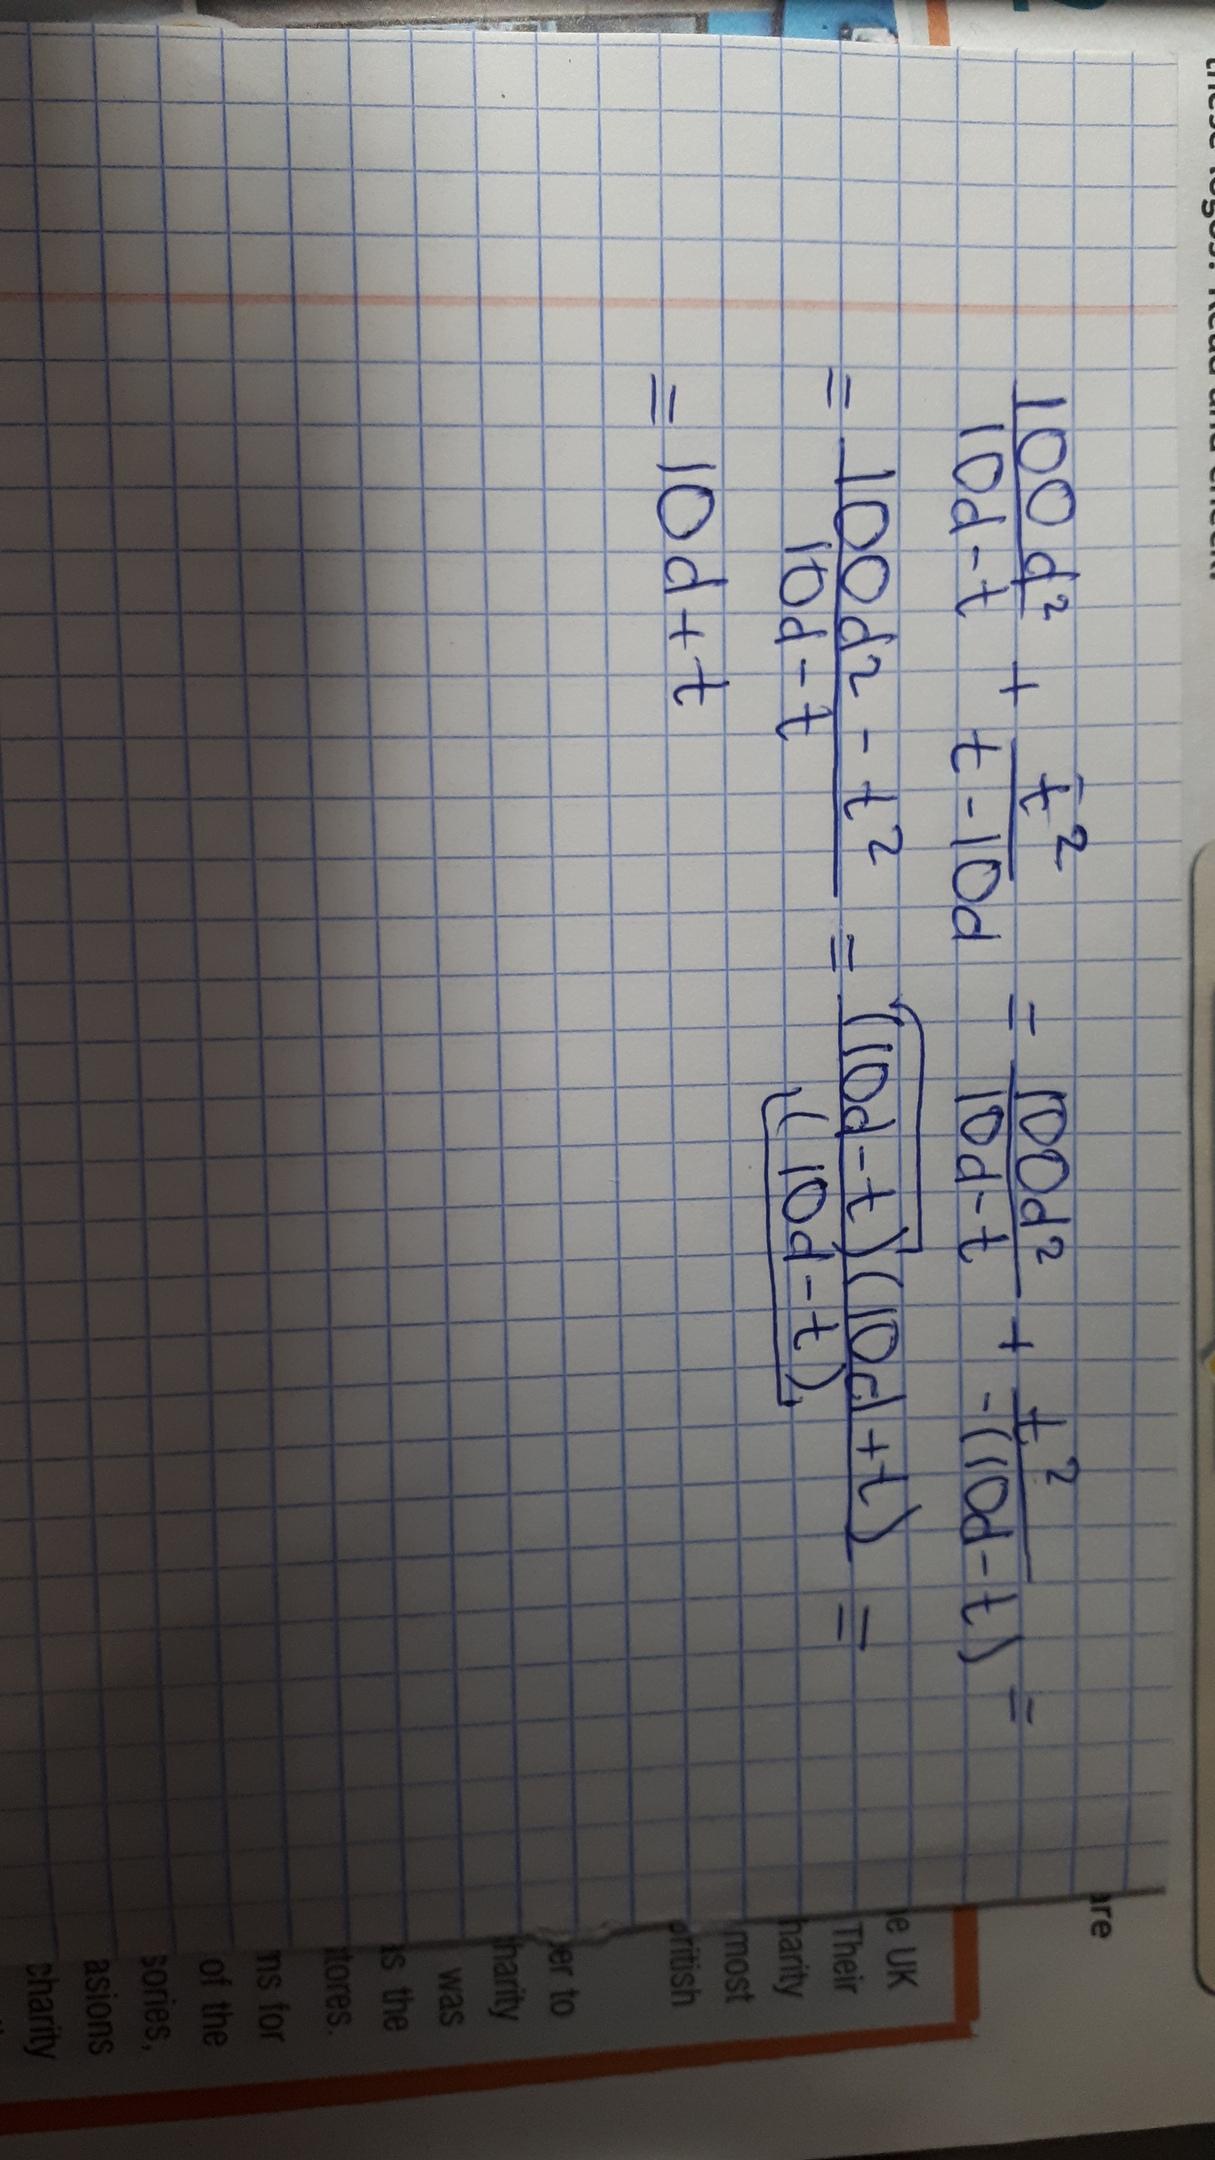 these logos. Read and check.
100d² / 10d-t + t² / t-10d = 100d² / 10d-t + t² / -(10d-t) =
= 100d² - t² / 10d-t = (10d-t)(10d+t) / (10d-t) =
= 10d+t
are
e UK
Their
harity
most
british
er to
harity
was
s the
tores.
ns for
of the
sories,
asions
charity